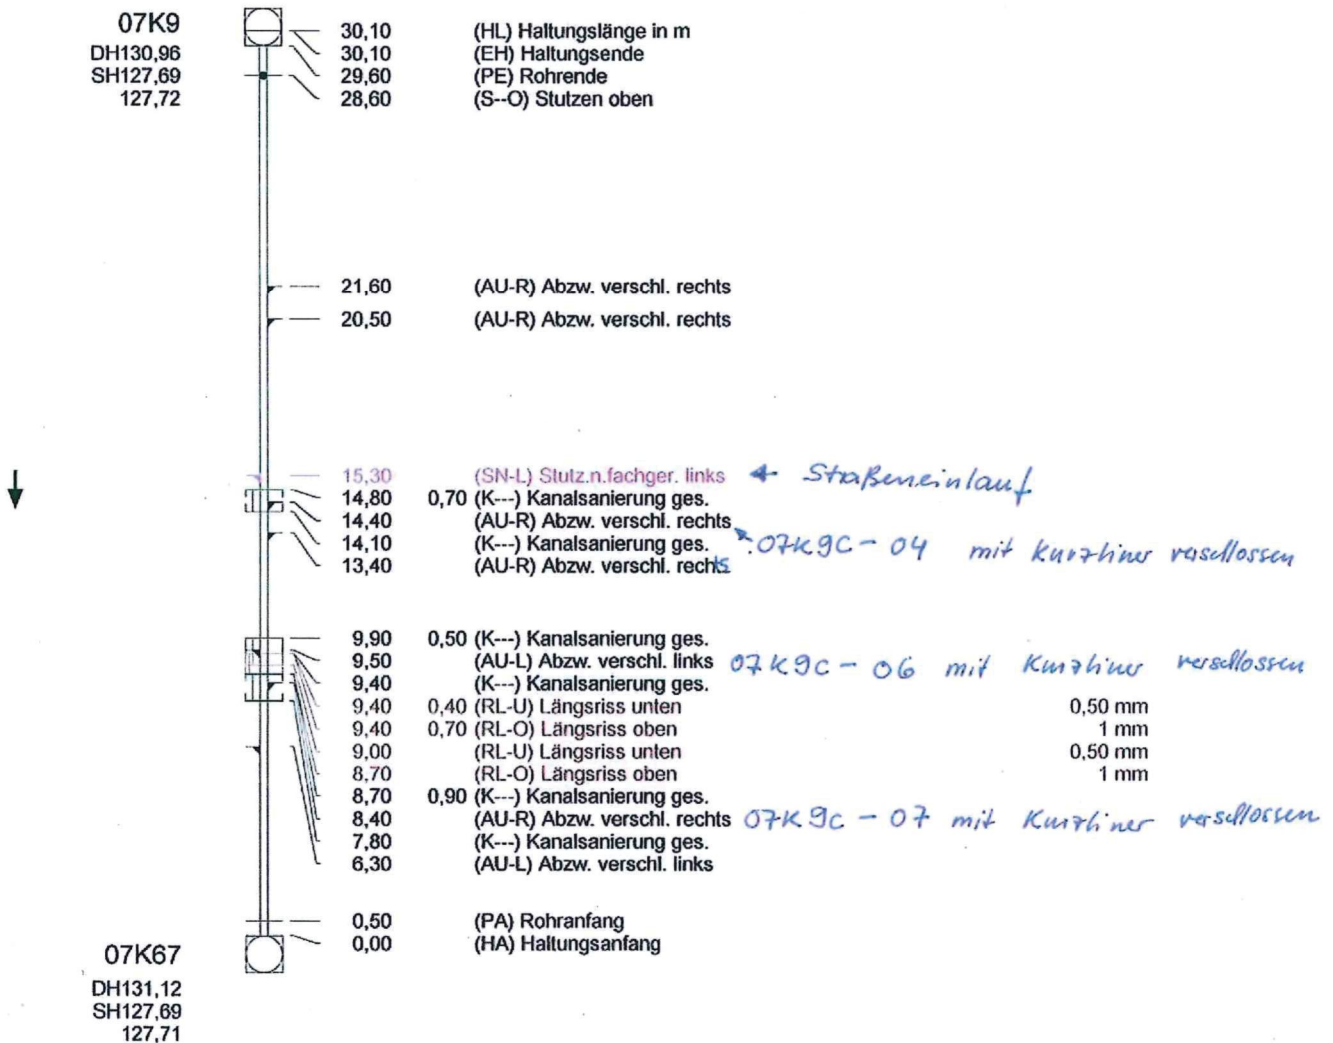 07K9
DH130,96
SH127,69
127,72
30,10 (HL) Haltungslänge in m
30,10 (EH) Haltungsende
29,60 (PE) Rohrende
28,60 (S--O) Stutzen oben
21,60 (AU-R) Abzw. verschl. rechts
20,50 (AU-R) Abzw. verschl. rechts
15,30 (SN-L) Stutz.n.fachger. links Straßeneinlauf
14,80 0,70 (K---) Kanalsanierung ges.
14,40 (AU-R) Abzw. verschl. rechts
14,10 (K---) Kanalsanierung ges. 07K9C - 04 mit Kurzliner verschlossen
13,40 (AU-R) Abzw. verschl. rechts
9,90 0,50 (K---) Kanalsanierung ges.
9,50 (AU-L) Abzw. verschl. links 07K9C - 06 mit Kurzliner verschlossen
9,40 (K---) Kanalsanierung ges.
9,40 0,40 (RL-U) Längsriss unten 0,50 mm
9,40 0,70 (RL-O) Längsriss oben 1 mm
9,00 (RL-U) Längsriss unten 0,50 mm
8,70 (RL-O) Längsriss oben 1 mm
8,70 0,90 (K---) Kanalsanierung ges.
8,40 (AU-R) Abzw. verschl. rechts 07K9C - 07 mit Kurzliner verschlossen
7,80 (K---) Kanalsanierung ges.
6,30 (AU-L) Abzw. verschl. links
0,50 (PA) Rohranfang
0,00 (HA) Haltungsanfang
07K67
DH131,12
SH127,69
127,71